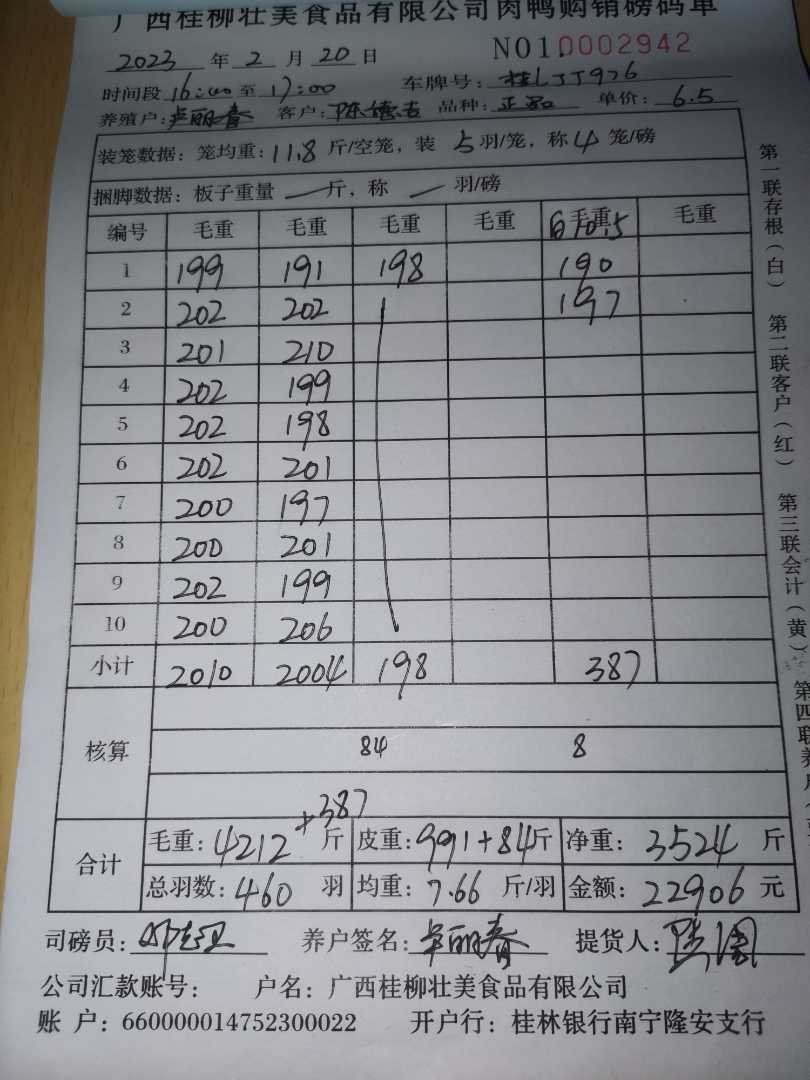 广西桂柳壮美食品有限公司肉鸭购销磅码单
2023 年 2 月 20 日 NO1.0002942
时间段 16:00 至 17:00 车牌号: 桂LJJ976
养殖户: 卢丽春 客户: 陈德吉 品种: 正品 单价: 6.5
装笼数据: 笼均重: 11.8 斤/空笼, 装 5 羽/笼, 称 4 笼/磅
捆脚数据: 板子重量 — 斤, 称 — 羽/磅
编号 毛重 毛重 毛重 毛重 毛重 10.5 毛重
1 199 191 198 190
2 202 202 197
3 201 210
4 202 199
5 202 198
6 202 201
7 200 197
8 200 201
9 202 199
10 200 206
小计 2010 2004 198 387
核算
84 8
+387
合计 毛重: 4212 斤 皮重: 991+84 斤 净重: 3524 斤
总羽数: 460 羽 均重: 7.66 斤/羽 金额: 22906 元
司磅员: 养户签名: 卢丽春 提货人:
公司汇款账号: 户名: 广西桂柳壮美食品有限公司
账 户: 660000014752300022 开户行: 桂林银行南宁隆安支行
第一联存根(白) 第二联客户(红) 第三联会计(黄) 第四联养户